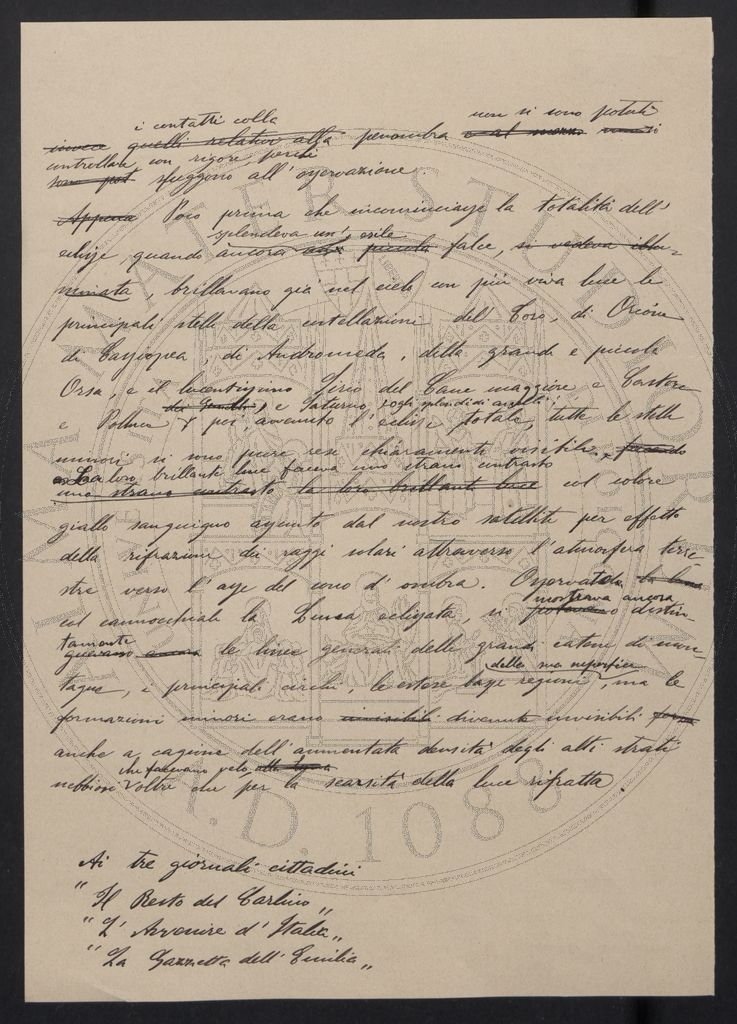 i contatti colla non si sono potuti
invece quelli relativi alla penombra e al mezzo
controllare con rigore, perché
sono pot sfuggono all'osservazione.
Appena Poco prima che incominciasse la totalità dell'
splendeva un'esile
eclisse, quando ancora piccola falce, si vedeva illu-
minata, brillavano già nel cielo con più viva luce le
principali stelle della costellazioni del Toro, di Orione
di Cassiopea, di Andromeda, della grande e piccola
Orsa, e il lucentissimo Sirio del Cane maggiore e Castore
dei Gemelli, e Saturno, dagli splendidi anelli;
e Polluce poi, avvenuto l'eclisse totale, tutte le stelle
minori si sono pure rese chiaramente visibili. facendo
La loro brillante luce faceva uno strano contrasto
uno strano contrasto la loro brillante luce col colore
giallo sanguigno assunto dal nostro satellite per effetto
della rifrazione dei raggi solari attraverso l'atmosfera terre
stre verso l'asse del cono d'ombra. Osservata la luna
mostrava ancora
col cannocchiale la Luna eclissata, si potevano distin-
tamente
guevano ancora le linee generali delle grandi catene di mon-
della sua superficie
tagne, i principali circhi, le estese basse regioni, ma le
formazioni minori erano invisibili divenute invisibili forse
anche a cagione dell'aumentata densità degli alti strati
che facevano velo alla luna
nebbiosi oltre che per la scarsità della luce rifratta.
Ai tre giornali cittadini
"Il Resto del Carlino"
"L'Avvenire d'Italia"
"La Gazzetta dell'Emilia"
ALMA MATER STUDIORUM
A.D. 1088